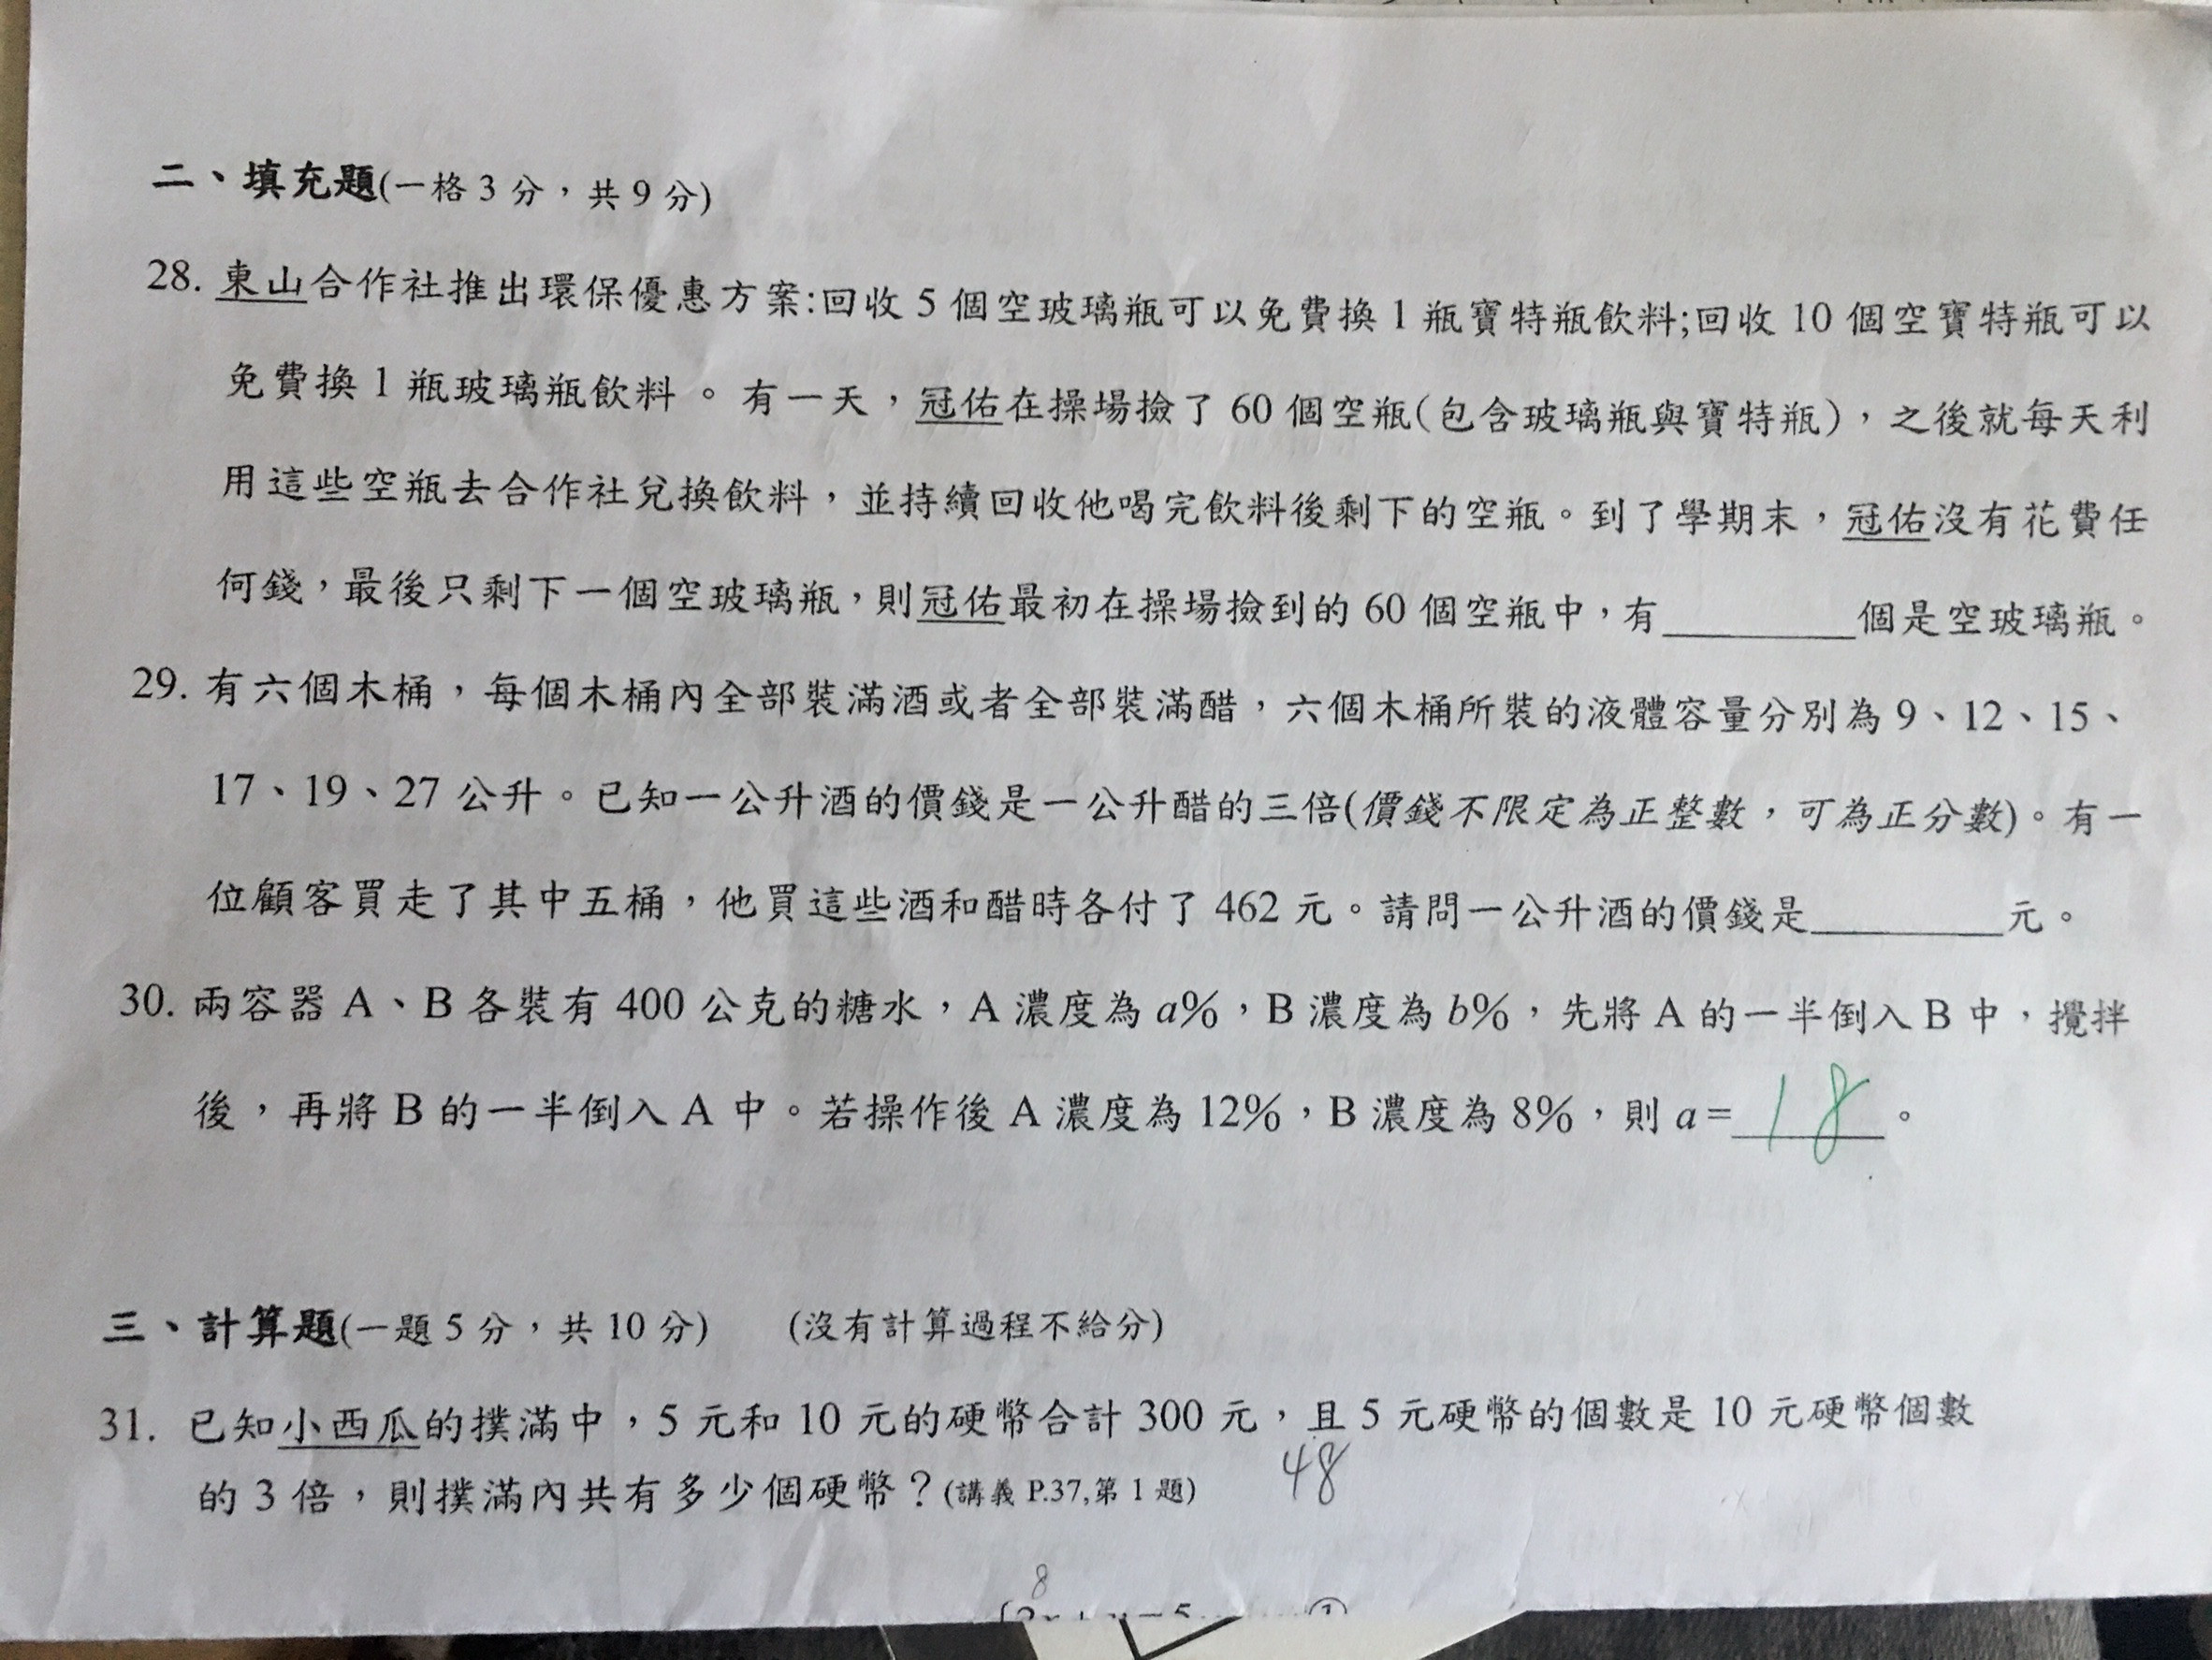 二、填充題(一格3分，共9分)
28. 東山合作社推出環保優惠方案:回收5個空玻璃瓶可以免費換1瓶寶特瓶飲料;回收10個空寶特瓶可以
免費換1瓶玻璃瓶飲料。有一天，冠佑在操場撿了60個空瓶(包含玻璃瓶與寶特瓶)，之後就每天利
用這些空瓶去合作社兌換飲料，並持續回收他喝完飲料後剩下的空瓶。到了學期末，冠佑沒有花費任
何錢，最後只剩下一個空玻璃瓶，則冠佑最初在操場撿到的60個空瓶中，有________個是空玻璃瓶。
29. 有六個木桶，每個木桶內全部裝滿酒或者全部裝滿醋，六個木桶所裝的液體容量分別為9、12、15、
17、19、27公升。已知一公升酒的價錢是一公升醋的三倍(價錢不限定為正整數，可為正分數)。有一
位顧客買走了其中五桶，他買這些酒和醋時各付了462元。請問一公升酒的價錢是________元。
30. 兩容器A、B各裝有400公克的糖水，A濃度為a%，B濃度為b%，先將A的一半倒入B中，攪拌
後，再將B的一半倒入A中。若操作後A濃度為12%，B濃度為8%，則a=18。
三、計算題(一題5分，共10分) (沒有計算過程不給分)
31. 已知小西瓜的撲滿中，5元和10元的硬幣合計300元，且5元硬幣的個數是10元硬幣個數
的3倍，則撲滿內共有多少個硬幣？(講義P.37,第1題) 48
8